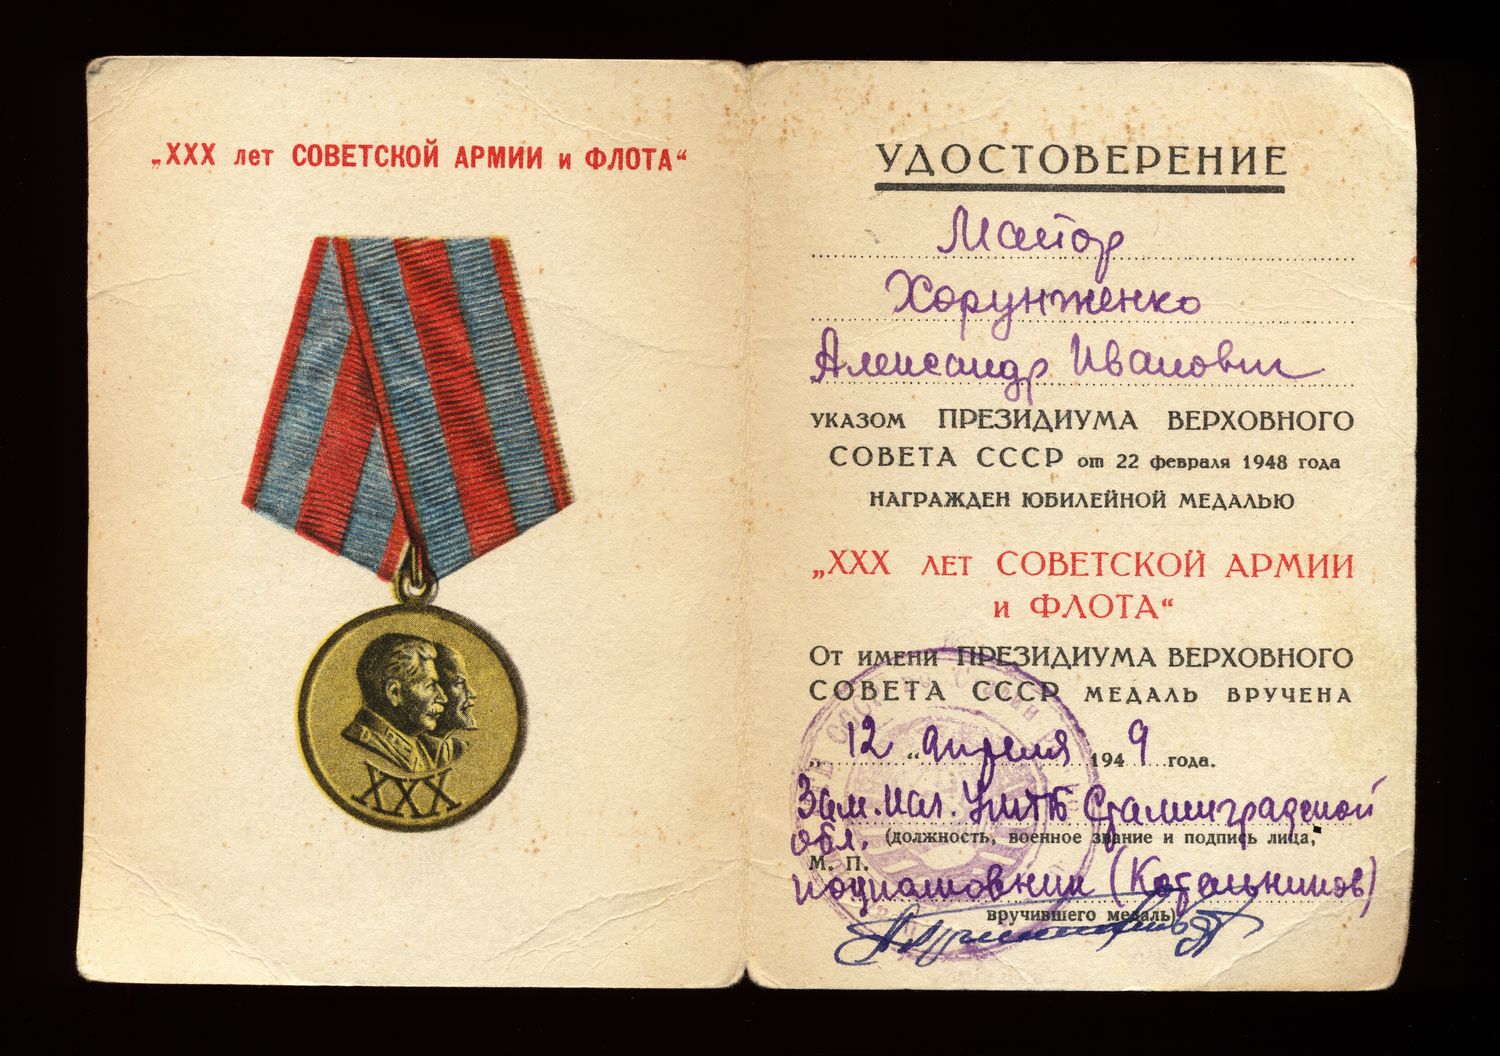 „XXX лет СОВЕТСКОЙ АРМИИ и ФЛОТА“
XXX
УДОСТОВЕРЕНИЕ
Майор
Хорунженко
Александр Иванович
УКАЗОМ ПРЕЗИДИУМА ВЕРХОВНОГО
СОВЕТА СССР от 22 февраля 1948 года
НАГРАЖДЕН ЮБИЛЕЙНОЙ МЕДАЛЬЮ
„XXX ЛЕТ СОВЕТСКОЙ АРМИИ
и ФЛОТА“
ОТ ИМЕНИ ПРЕЗИДИУМА ВЕРХОВНОГО
СОВЕТА СССР МЕДАЛЬ ВРУЧЕНА
„12“ апреля 1949 года.
Зам. нач. УМТБ Сталинградской
обл. (должность, военное звание и подпись лица,
М. П.
подполковник (Котельников)
вручившего медаль)